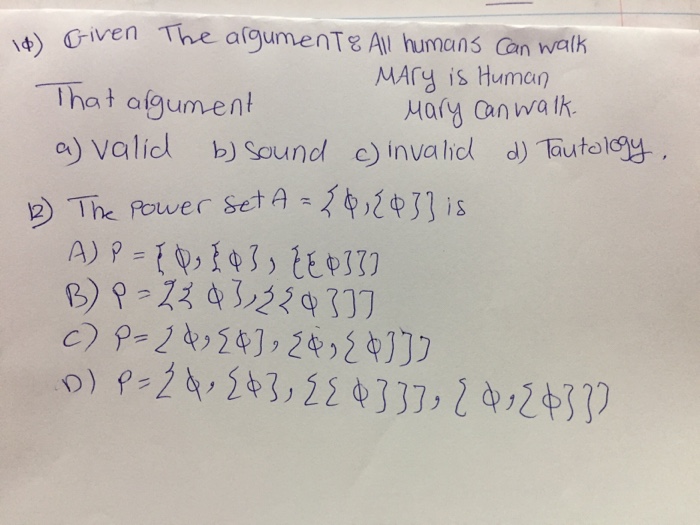 1φ) Given The argument: All humans can walk
MAry is Human
That argument Mary can walk.
a) valid b) sound c) invalid d) Tautology.
12) The power set A = {φ,{φ}} is
A) P = {φ, {φ}, {{φ}}}
B) P = {{φ},{{φ}}}
C) P = {φ, {φ}, {φ, {φ}}}
D) P = {φ, {φ}, {{φ}}}, {φ, {φ}}}